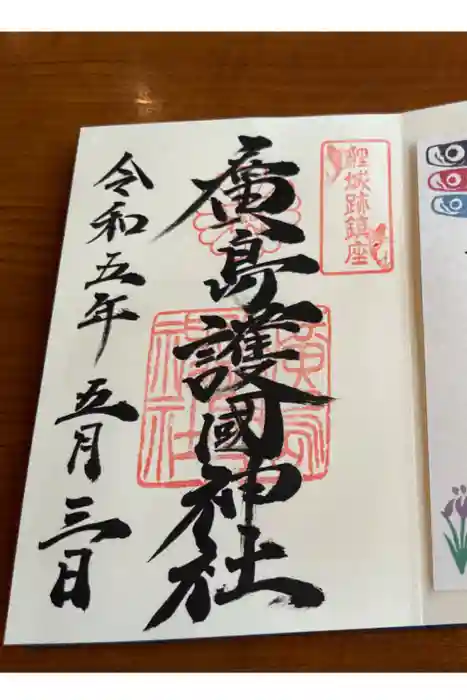 鯉城跡鎮座
廣島護國神社
令和五年 五月三日